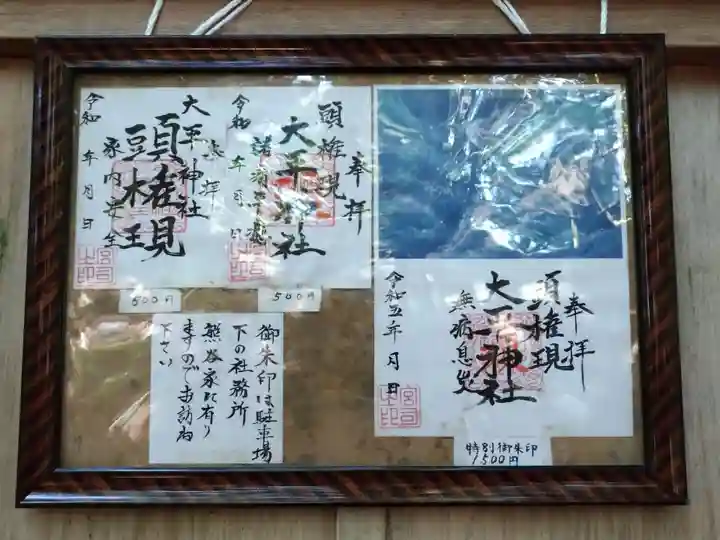 奉拝
頭権現
大平神社
令和五年 月 日
無病息災
特別御朱印
1,500円
奉拝
頭権現
大平神社
令和 年 月 日
500円
奉拝
大平神社
頭権現
家内安全
令和 年 月 日
500円
御朱印は駐車場
下の社務所
熊谷家に有り
ますのでお訪ね
下さい